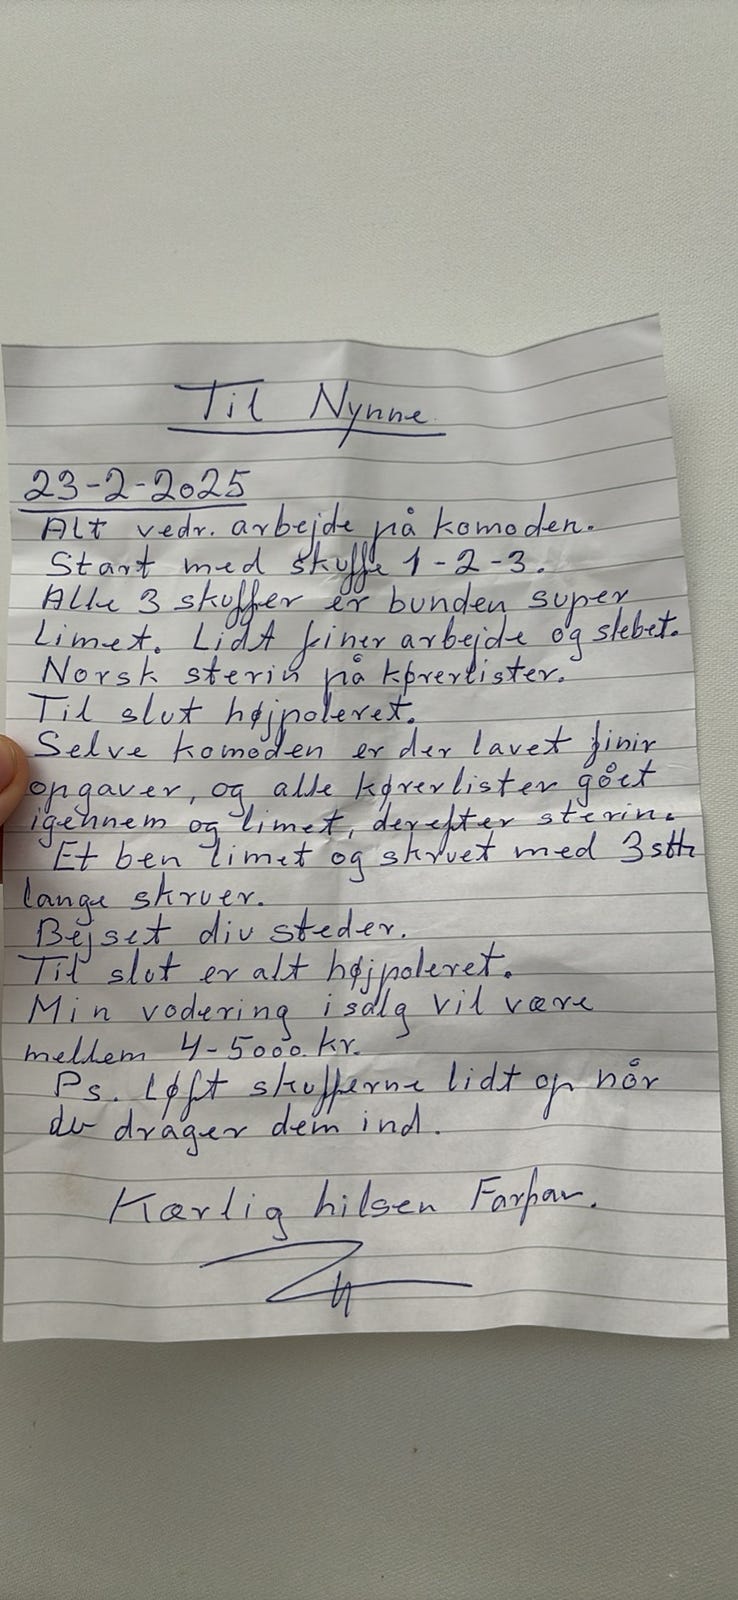 Til Nynne
23-2-2025
Alt vedr. arbejde på komoden.
Start med skuffe 1-2-3.
Alle 3 skuffer er bunden super
limet. Lidt finer arbejde og slebet.
Norsk sterin på kørerlister.
Til slut højpoleret.
Selve komoden er der lavet finir
opgaver, og alle kørerlister gået
igennem og limet, derefter sterin.
Et ben limet og skruet med 3 stk
lange skruer.
Bejset div steder.
Til slut er alt højpoleret.
Min vodering i salg vil være
mellem 4-5000 kr.
Ps. Løft skufferne lidt op når
du drager dem ind.
Kærlig hilsen Farfar.